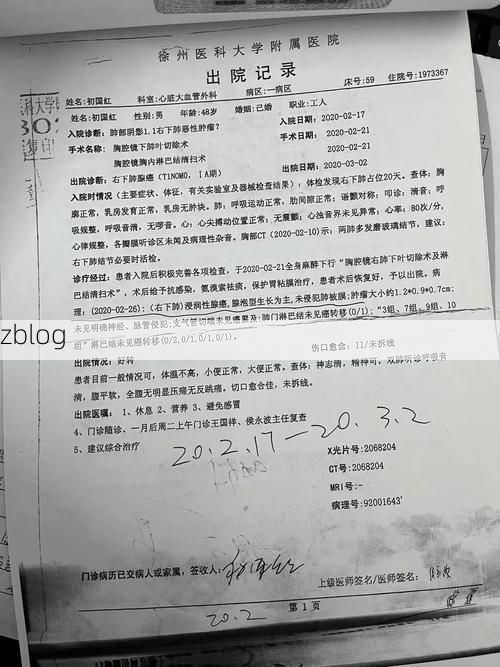 徐州医科大学附属医院
出院记录
姓名:初国红 科室:心脏大血管外科 病区:一病区 床号:59 住院号:1973367
姓名:初国红 性别:男 年龄:48岁 婚姻:已婚 职业:工人
入院诊断:肺部阴影1.1右下肺恶性肿瘤? 入院日期:2020-02-17
手术名称:胸腔镜下肺叶切除术 手术日期:2020-02-21
胸腔镜胸内淋巴结清扫术 2020-02-21
出院诊断:右下肺腺癌(T1N0M0,ⅠA期) 出院日期:2020-03-02
入院时情况(主要症状、体征,有关实验室及器械检查结果):体检发现右下肺占位20天。查体:胸
廓正常,乳房发育正常,乳房无肿块。肺:呼吸运动正常,肋间隙正常;语颤对称;叩诊:清音;呼
吸规整,呼吸音清,无啰音。心:心尖搏动位置正常;无震颤;心浊音界未见异常;心率:80次/分,
心律规整,各瓣膜听诊区未闻及病理性杂音。胸部CT(2020-02-10)示:两肺多发磨玻璃结节,建议:
右下肺结节必要时活检。
诊疗经过:患者入院后积极完善各项检查,于2020-02-21全身麻醉下行“胸腔镜右肺下叶切除术及淋
巴结清扫术”,术后给予抗感染,氨溴索祛痰,保护胃粘膜治疗,患者术后恢复好,予以出院。病
理:(2020-02-26):(右下肺)浸润性腺癌,腺泡型生长为主,未侵犯肺被膜;肿瘤大小约1.2*0.9*0.7cm;
未见明确神经、脉管侵犯;支气管切端未见癌累及;肺门淋巴结未见癌转移(0/1);“3组、7组、9组、10
组”淋巴结未见癌转移(0/2,0/1,0/1,0/1)。
出院情况:好转 伤口愈合:II/未拆线
患者目前一般情况可,体温不高,小便正常,大便正常。查体:神志清,精神可,双肺听诊呼吸音
清,腹平软,全腹无明显压痛无反跳痛。切口愈合佳,未拆线。
出院医嘱:1、休息 2、营养 3、避免感冒
4、门诊随诊、一月后周二上午门诊王国祥、侯永波主任复查
5、建议综合治疗
20.2.17—20.3.2
X光片号:2068204
CT号:2068204
MRI号:-
病理号:92001643'
门诊病历已交病人或家属,签收人:
上级医师签名/医师签名:
第1页
20.2
zblog